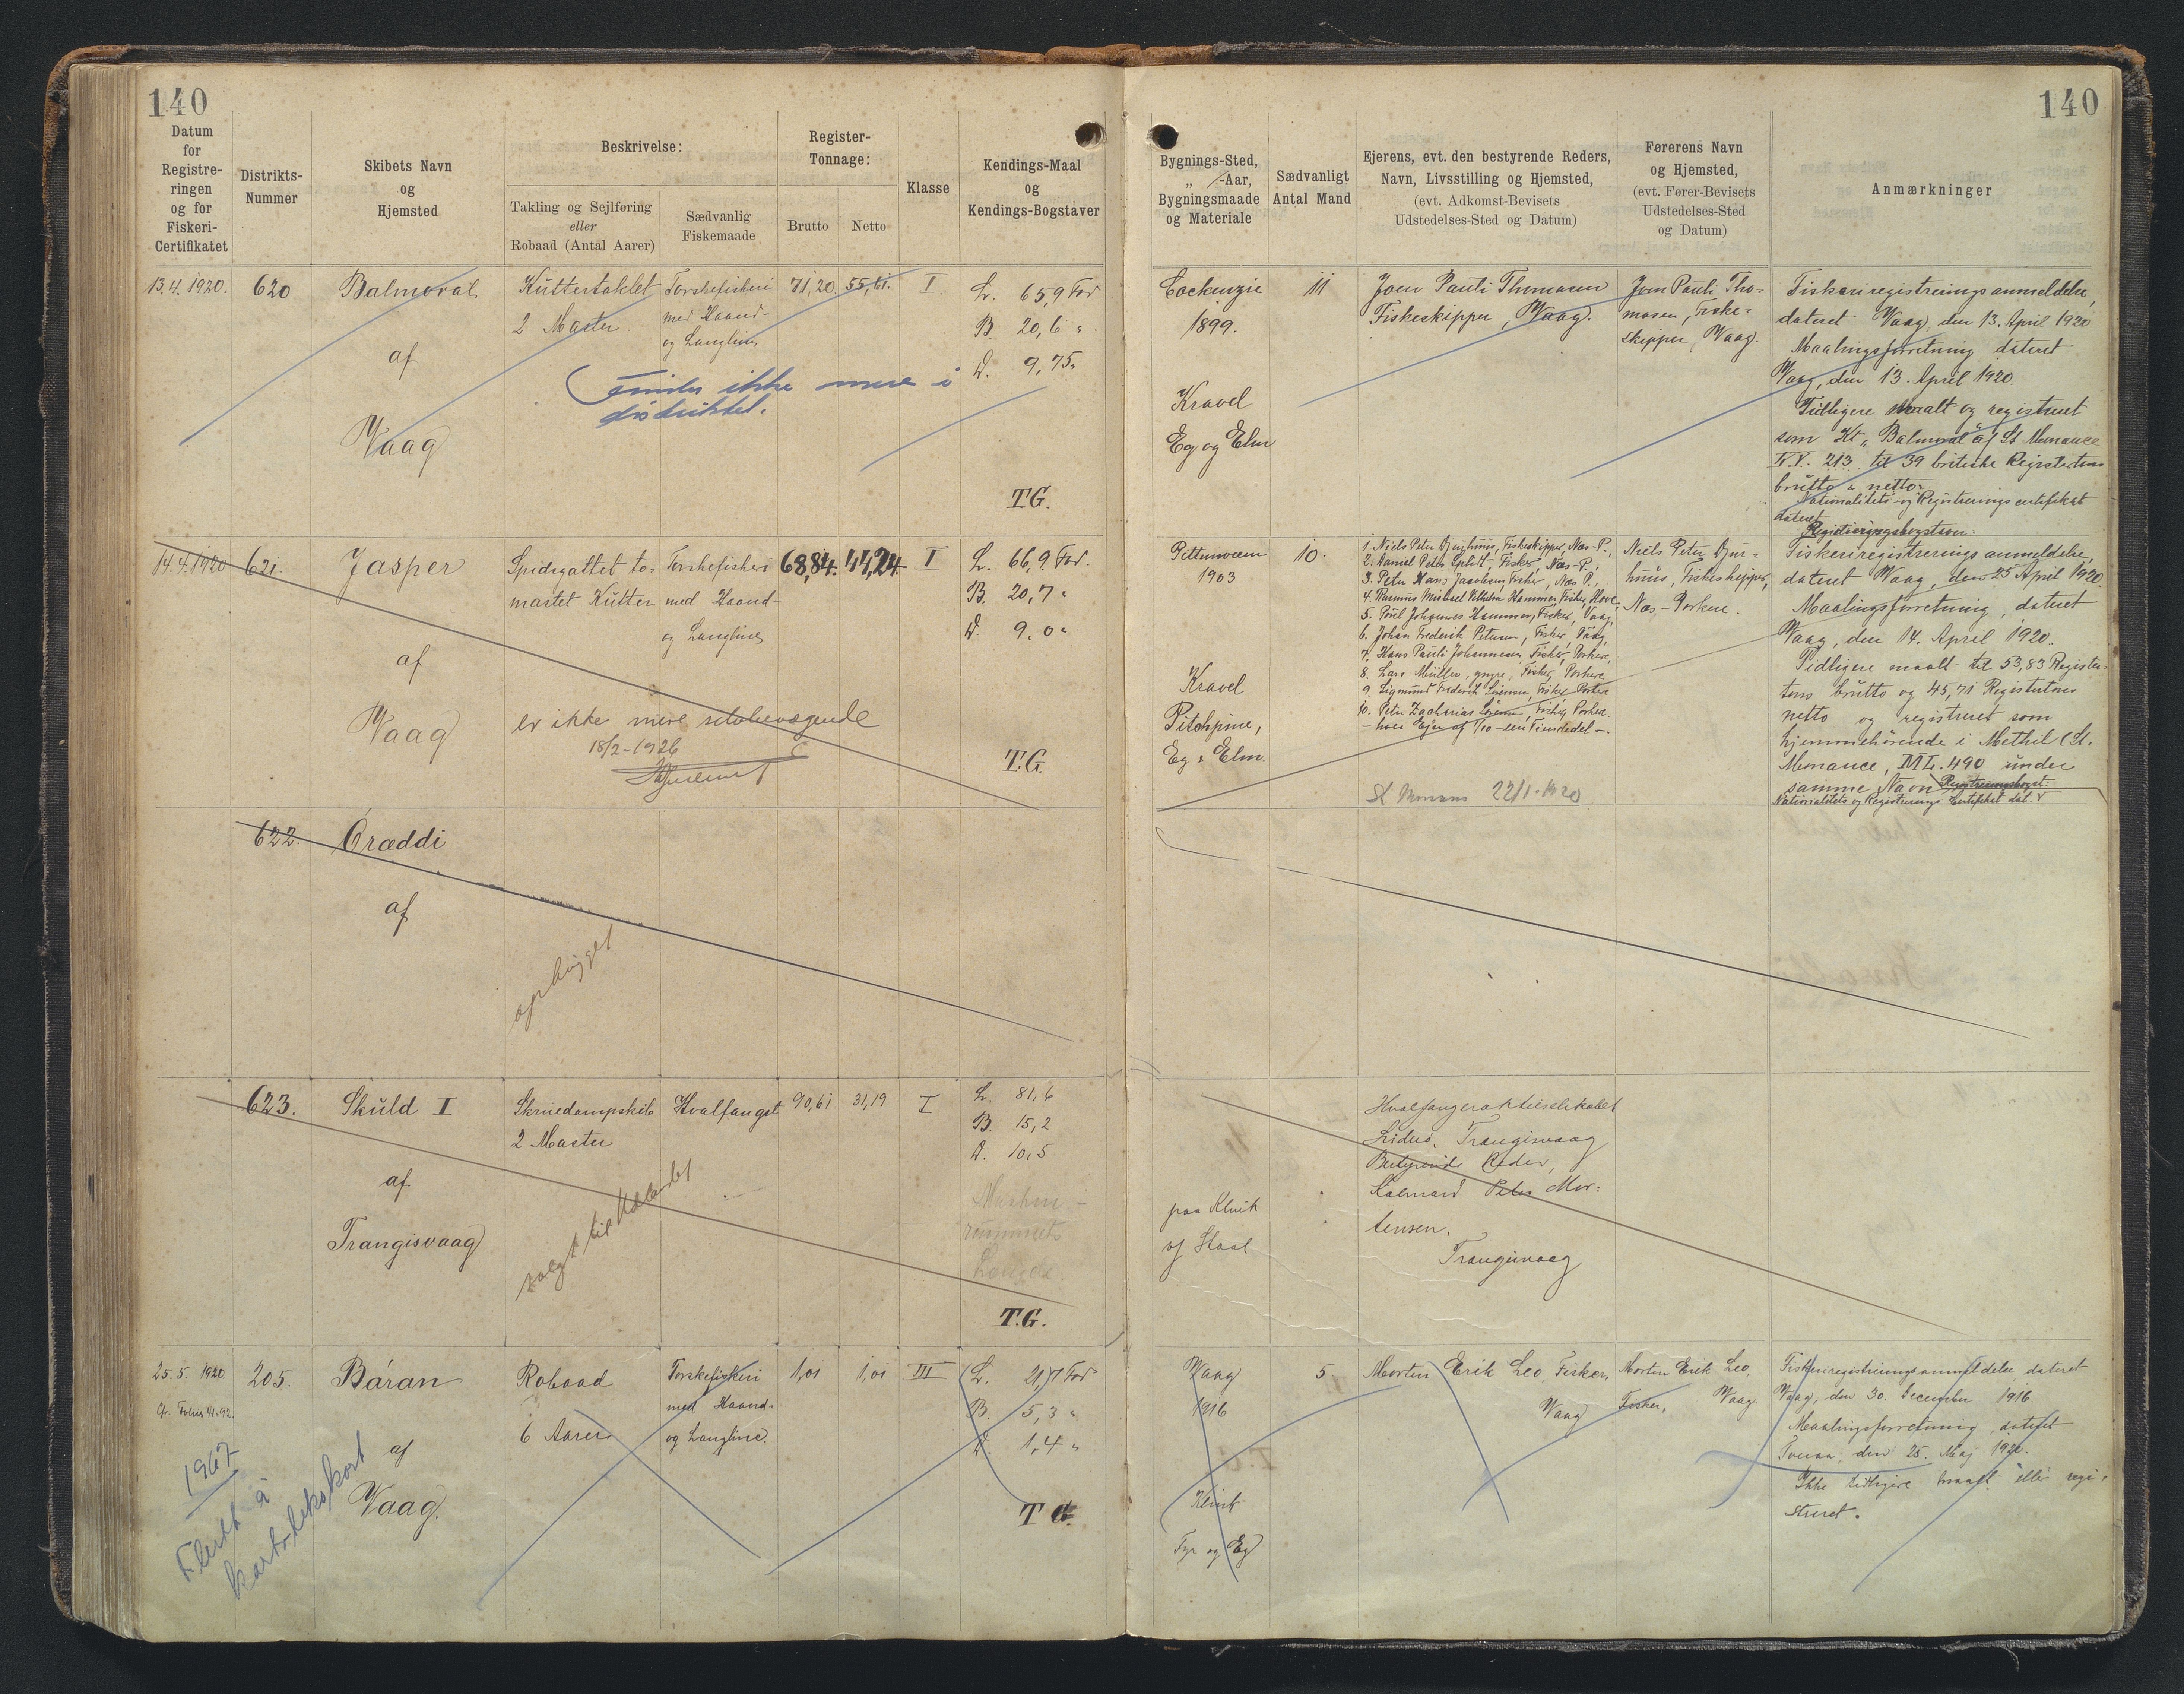 140
140
Datum
for
Registre-
ringen
og for
Fiskeri-
Certifikatet
Distrikts-
Nummer
Skibets Navn
og
Hjemsted
Beskrivelse:
Takling og Sejlføring
eller
Robaad (Antal Aarer)
Sædvanlig
Fiskemaade
Register-
Tonnage:
Brutto
Netto
Klasse
Kendings-Maal
og
Kendings-Bogstaver
Bygnings-Sted,
„ -Aar,
Bygningsmaade
og Materiale
Sædvanligt
Antal Mand
Ejerens, evt. den bestyrende Reders,
Navn, Livsstilling og Hjemsted,
(evt. Adkomst-Bevisets
Udstedelses-Sted og Datum)
Førerens Navn
og Hjemsted,
(evt. Fører-Bevisets
Udstedelses-Sted
og Datum)
Anmærkninger
13.4.1920.
620
Balmoral
af
Vaag
Kuttertaklet
2 Master.
Torskefiskeri
med Haand-
og Langline
71,20
55,61
I
L. 65,9 Fod
B. 20,6 "
D. 9,75 "
T.G.
ikke mere i
distriktet.
Cockenzie
1899.
Kravel
Eg og Elm
11
Joen Pauli Thomasen
Fiskeskipper, Vaag.
Joen Pauli Tho-
masen, Fiske-
skipper, Vaag.
Fiskeriregistreringsanmeldelse,
dateret Vaag, den 13. April 1920
Maalingsforretning dateret
Vaag, den 13. April 1920.
Tidligere maalt og registreret
som Kt. "Balmoral" af St Monance
K.Y. 213 til 39 britiske Registertons
brutto & netto.
Nationalitets- og Registreringscertifikat
dateret
14.4.1920
621.
Jasper
af
Vaag
Spidsgattet to-
mastet Kutter
Torskefiskeri
med Haand-
og Langline
68,84.
44,24.
I
L. 66,9 Fod.
B. 20,7 "
D. 9,0 "
T.G.
er ikke mere selvbevægende
18/2-1926
Pittenweem
1903
Kravel
Pitchpine,
Eg & Elm.
10.
1. Niels Peter Djurhuus, Fiskeskipper, Næs-P.,
3. Peter Hans Jacobsen, Fisker, Næs P.,
4. Rasmus Michael Vilhelm Hammer, Fisker, Hove,
5. Poul Johannes Hammer, Fisker, Vaag,
6. Johan Frederik Petersen, Fisker, Vaag,
7. Hans Pauli Johannesen, Fisker, Porkere,
8. Lars Müller, yngre, Fisker, Porkere
10. Peter Zacharias Fisker, Porkere.
- hver Ejer af 1/10 - een Tiendedel -.
22/1-1920
Niels Peter Djur-
huus, Fiskeskipper,
Næs-Porkere.
Fiskeriregistreringsanmeldelse,
dateret Vaag, den 25 April 1920
Maalingsforretning, dateret
Vaag, den 14. April 1920.
Tidligere maalt til 53,83 Register-
tons brutto og 45,71 Registertons
netto og registreret som
hjemmehørende i Methil (St.
Monance, ML. 490 under
samme Navn
Nationalitets og Registrerings Certifikat dat.
622.
Óræddi
af
ophugget
623.
Skuld I
af
Trangisvaag
Skruedampskib
2 Master
Hvalfangst
90,61
31,19
I
L. 81,6
B. 15,2
D. 10,5
Maskin-
rummets
Længde
T.G.
solgt til Udlandet
paa Klink
af Staal
Hvalfangeraktieselskabet
Trangisvaag
Bestyrende Reder,
Peter Mor-
tensen.
Trangisvaag
25.5.1920
205.
Báran
af
Vaag.
Robaad
6 Aarer
Torskefiskeri
med Haand-
og Langline.
1,01
1,01
III
L. 21,7 Fod
B. 5,3 "
D. 1,4 "
T G.
1967
Flutt á
kartotekskort
Vaag
1916
Klink
Fyr og Eg
5
Morten Erik Leo, Fisker,
Vaag
Morten Erik Leo,
Fisker, Vaag
Fiskeriregistreringsanmeldelse dateret
Vaag, den 30. December 1916
Maalingsforretning, dateret
den 25. Maj 1920.
Ikke tidligere maalt eller regi-
streret.